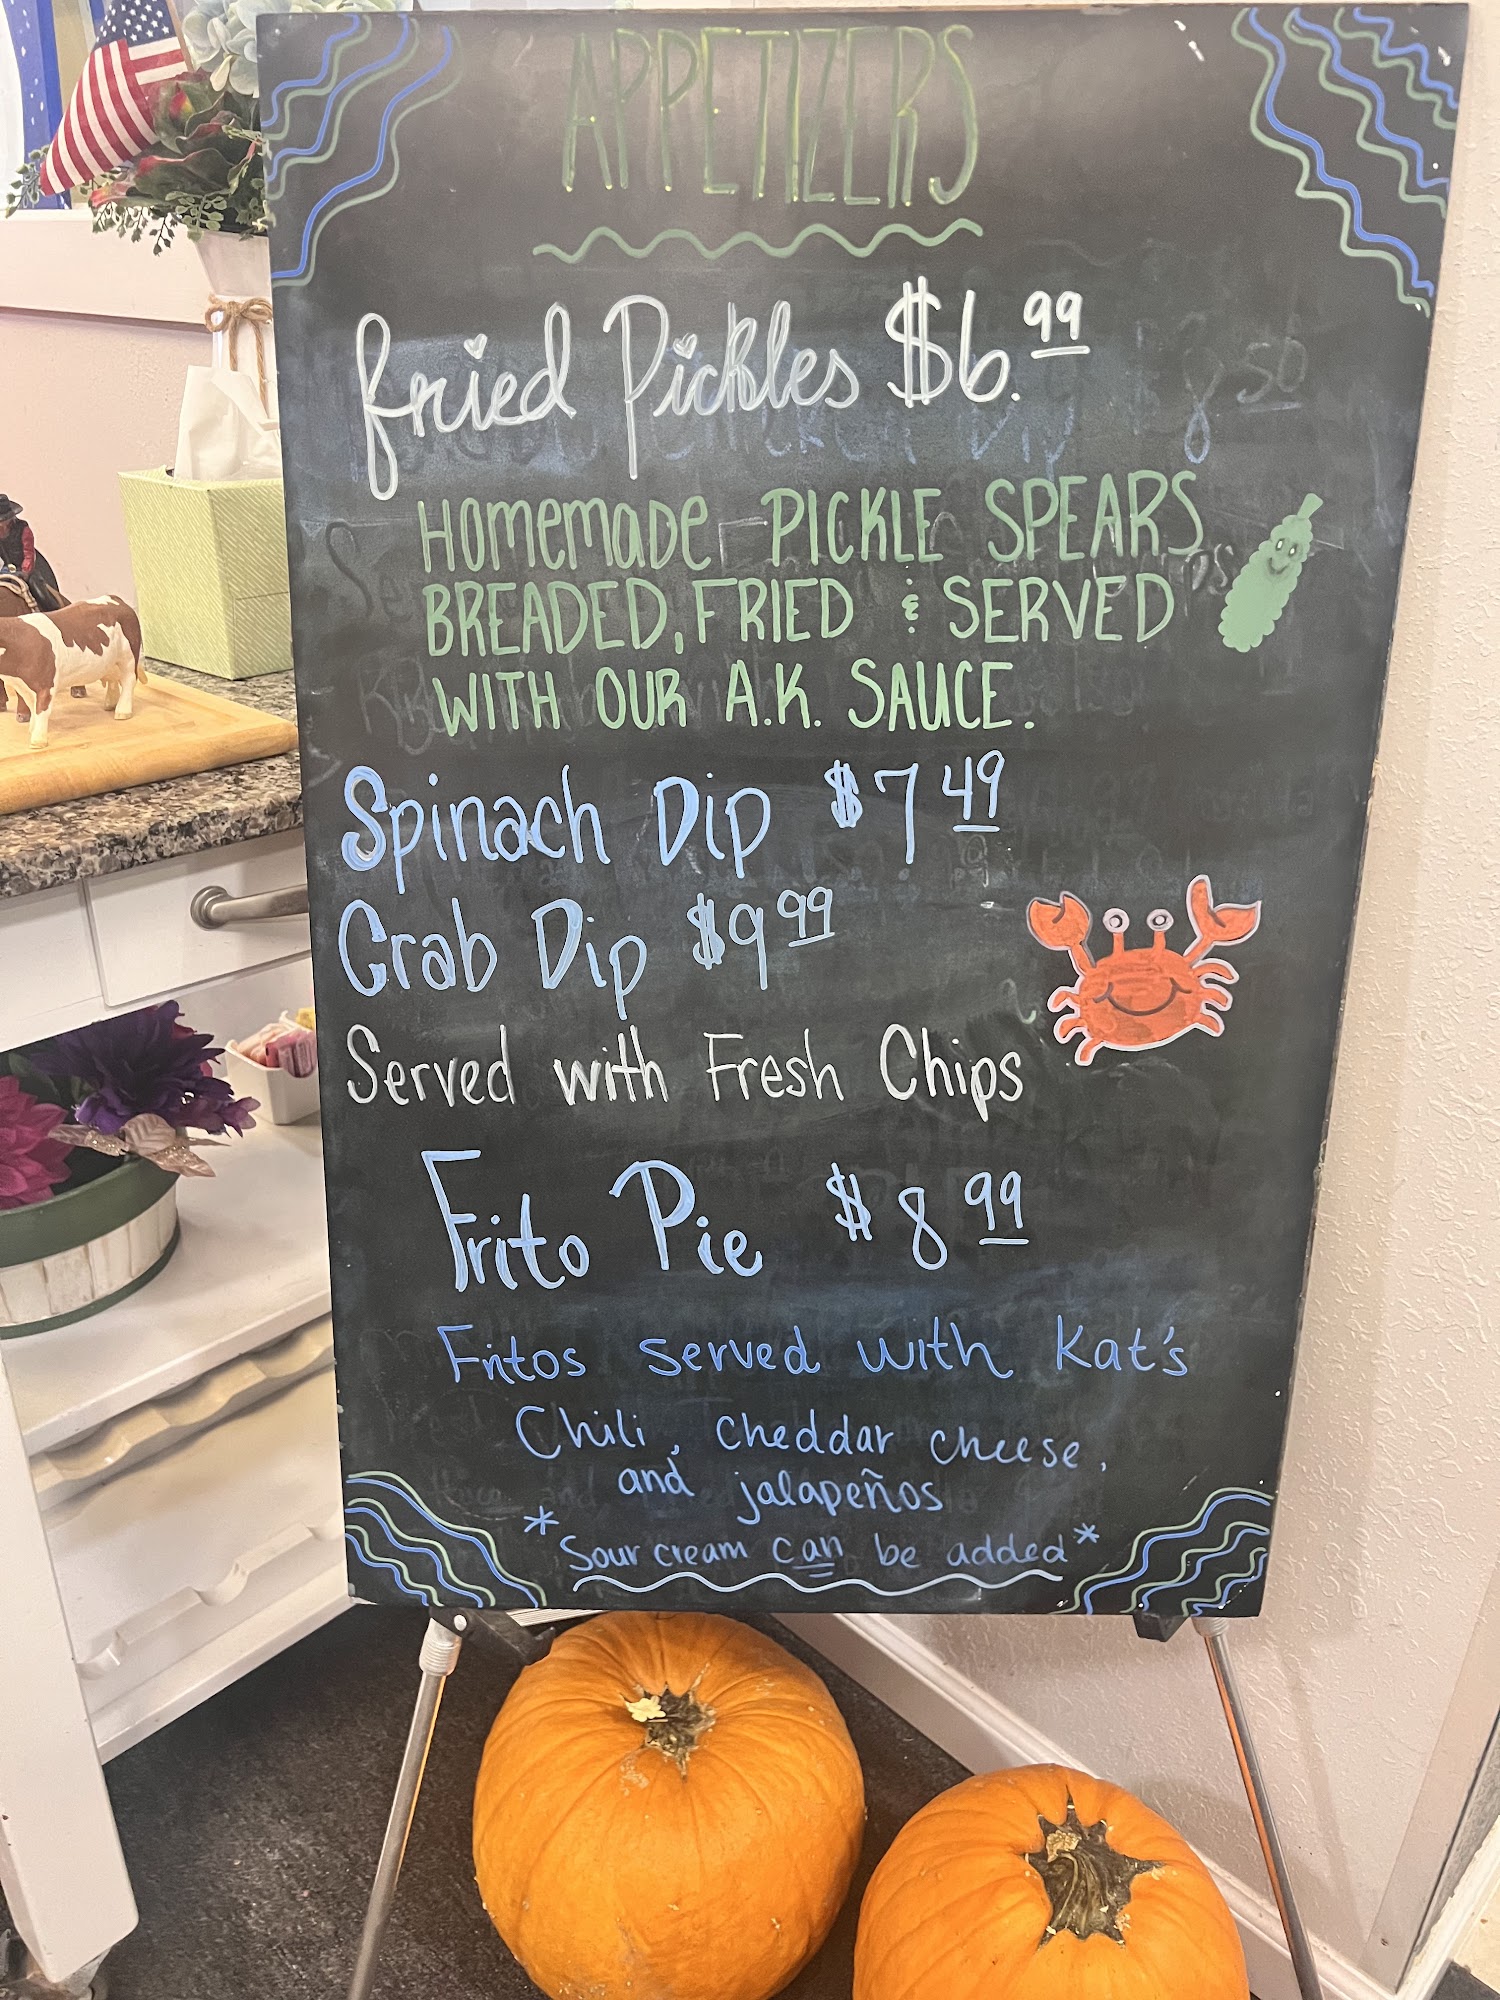 APPETIZERS
fried Pickles $6.99
HOMEMADE PICKLE SPEARS
BREADED, FRIED & SERVED
WITH OUR A.K. SAUCE.
Spinach Dip $7 49
Crab Dip $9 99
Served with Fresh Chips
Frito Pie $8 99
Fritos served with Kat's
Chili, cheddar cheese,
and jalapeños
*Sour cream can be added*